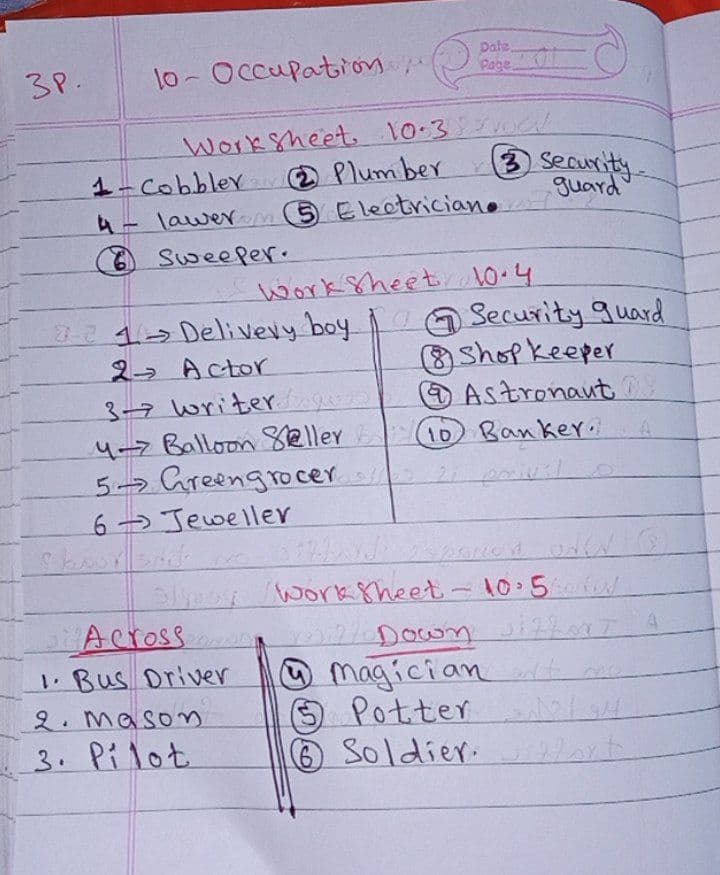 3P.
10 - Occupation
Date
Page 01
Worksheet 10.3
1 - Cobbler ② Plumber ③ Security guard
4 - lawer ⑤ Electrician.
⑥ Sweeper.
Worksheet 10.4
1 → Delivery boy
2 → Actor
3 → writer
4 → Balloon Seller
5 → Greengrocer
6 → Jeweller
⑦ Security guard
⑧ Shopkeeper
⑨ Astronaut
⑩ Banker.
Worksheet - 10.5
Across
1. Bus Driver
2. mason
3. Pilot
Down
④ magician
⑤ Potter
⑥ Soldier.